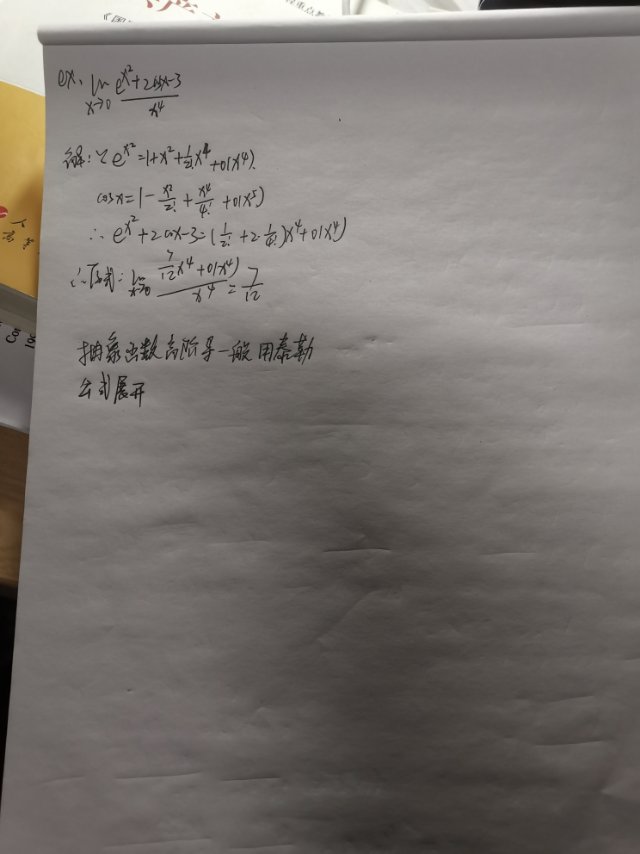 ex. lim x→0 (e^x²+2cosx-3)/x⁴
解: ∵ e^x²=1+x²+1/2! x⁴+o(x⁴).
cosx=1-x²/2!+x⁴/4!+o(x⁵)
∴ e^x²+2cosx-3=(1/2!+2·1/4!)x⁴+o(x⁴)
∴原式: lim x→0 (7/12 x⁴+o(x⁴))/x⁴=7/12
抽象函数高阶导一般用泰勒
公式展开